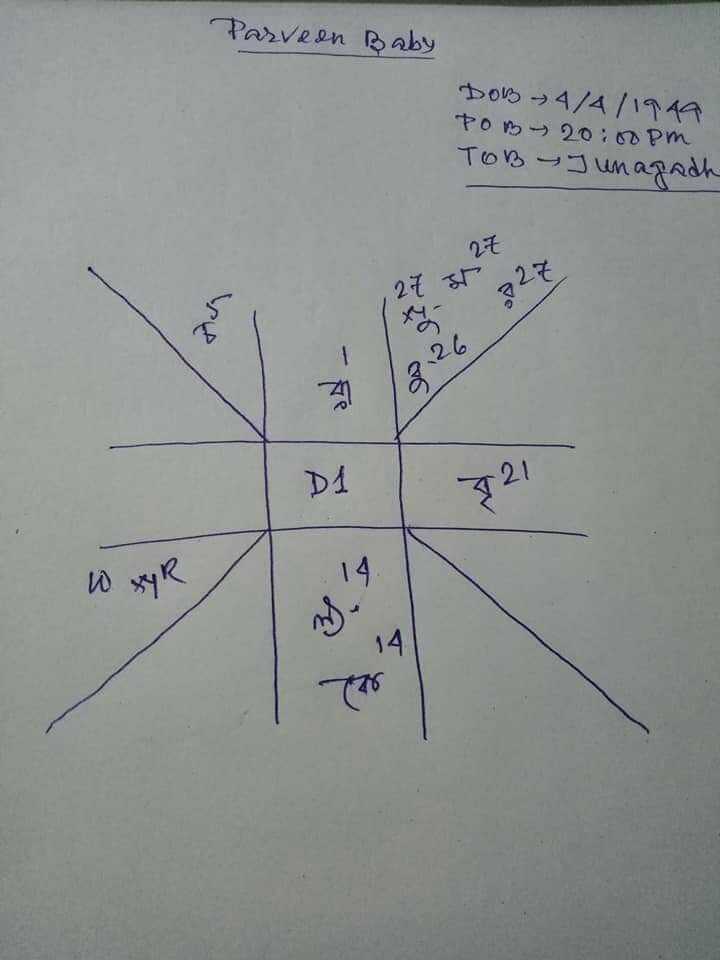 Parveen Baby
DOB → 4/4/1949
POB → 20:00 PM
TOB → Junagadh
27
27 ম 27
5 শু র
চ
1 বু 26
রা
D1 বৃ 21
10 শ R 14
ল
14
কে